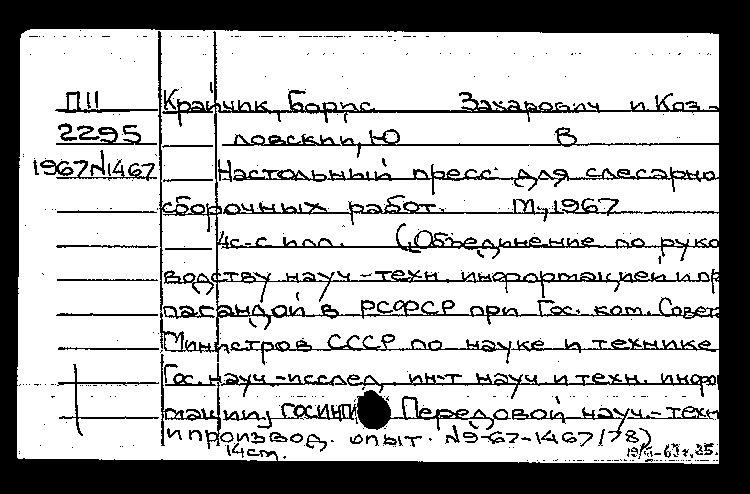 П11 Крайчик, Борис Захарович и Коз-
2295 ловский, Ю В
1967N1467 Настольный пресс для слесарно
сборочных работ. М., 1967
4с. с илл. (Объединение по руко
водству науч.-техн. информацией и пр
пагандой в РСФСР при Гос. ком. Совета
Министров СССР по науке и технике
Гос. науч.-исслед. ин-т науч. и техн. инфор
мации ГОСИНТИ Передовой науч.-техн
и производ. опыт. N9-67-1467/78)
14cm.